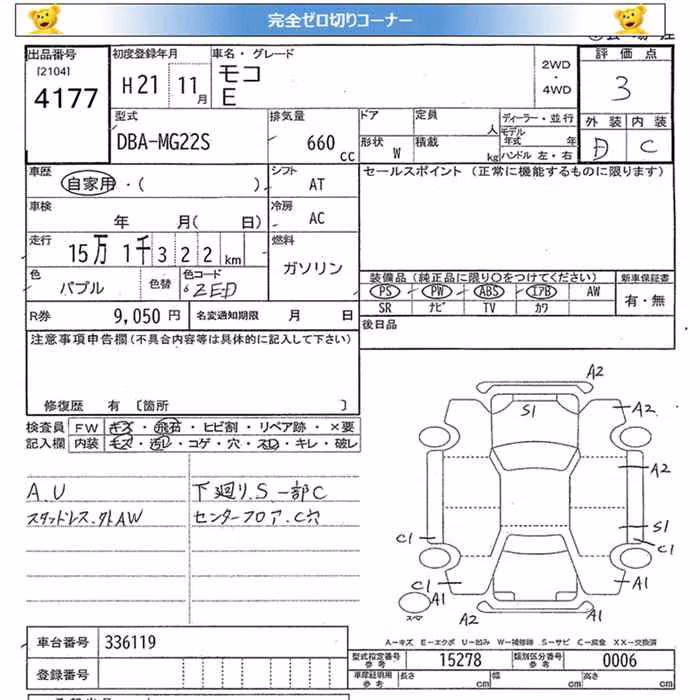 完全ゼロ切りコーナー
出品番号
[2104]
4177
初度登録年月
H21 11月
車名・グレード
モコ
E
2WD
・
4WD
評価点
3
外装 内装
D C
型式
DBA-MG22S
排気量
660 cc
ドア
定員
人
形状 W
積載
kg
ディーラー・並行
モデル年式 年
ハンドル 左・右
車歴
自家用・( )
シフト
AT
セールスポイント (正常に機能するものに限ります)
車検
年 月( 日)
冷房
AC
走行
15万 1千 3 2 2 km
燃料
ガソリン
色
パブル
色替
色コード
ZED
装備品 (純正品に限り○をつけてください)
新車保証書
PS PW ABS エアB AW
SR ナビ TV カワ
有・無
R券 9,050 円
名変通知期限 月 日
後日品
注意事項申告欄(不具合内容等は具体的に記入して下さい)
修復歴 有 〔箇所 〕
検査員
記入欄
FW キズ・飛石・ヒビ割・リペア跡・×要
内装 モズ・汚レ・コゲ・穴・スレ・キレ・破レ
A.U
スタッドレス.外AW
下廻り.S一部C
センターフロア.C穴
A2
S1
A2
A2
S1
C1
C1
C1
A1
A1
A2
スペア
A1
A−キズ E−エクボ U−凹み W−補修跡 S−サビ C−腐食 XX−交換済
車台番号 336119
型式指定番号
参考
15278
類別区分番号
参考
0006
登録番号
車庫証明用
参考
長さ cm
幅 cm
高さ cm